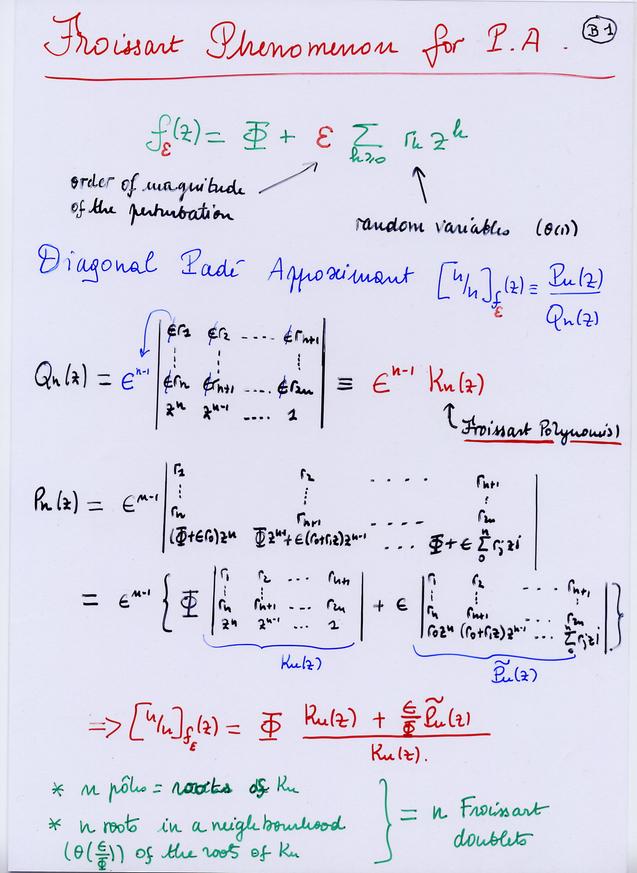 Froissart Phenomenon for P.A.
B1
f_ε(z) = Φ + ε Σ_{k≥0} r_k z^k
order of magnitude
of the perturbation
random variables (θ(1))
Diagonal Padé Approximant [n/n]_{f_ε}(z) ≡ Pn(z) / Qn(z)
Qn(z) = ε^{n-1} | εr1 εr2 ---- εr_{n+1} ; εrn εr_{n+1} ---- εr_{2n} ; z^n z^{n-1} .... 1 | ≡ ε^{n-1} Kn(z)
Froissart Polynomial
Pn(z) = ε^{n-1} | r1 r2 ---- r_{n+1} ; rn r_{n+1} ---- r_{2n} ; (Φ+εr0)z^n Φz^{n-1}+ε(r0+r1z)z^{n-1} ... Φ+ε Σ_0^n rj z^j |
= ε^{n-1} { Φ | r1 r2 ... r_{n+1} ; rn r_{n+1} ... r_{2n} ; z^n z^{n-1} ... 1 | + ε | r1 r2 ---- r_{n+1} ; rn r_{n+1} ---- r_{2n} ; r0z^n (r0+r1z)z^{n-1} ... Σ_0^n rj z^j | }
Kn(z) P̃n(z)
=> [n/n]_{f_ε}(z) = Φ (Kn(z) + ε/Φ P̃n(z)) / Kn(z).
* n pôles = roots of Kn
* n roots in a neighbourhood
(θ(ε/Φ)) of the roots of Kn
= n Froissart
doublets